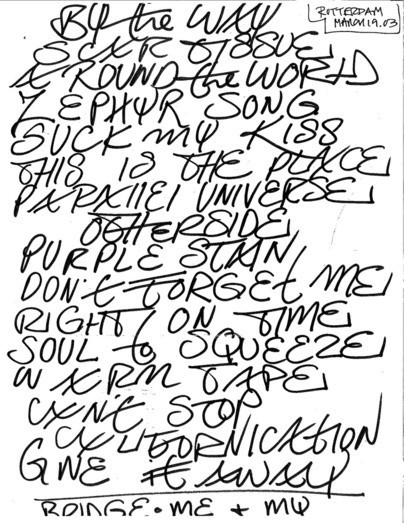 ROTTERDAM
MARCH 19.03
BY the WAY
SCAR TISSUE
AROUND the WORLD
ZEPHYR SONG
SUCK MY KISS
THIS IS THE PLACE
PARAllEl UNIVERSE
OTHERSIDE
PURPLE STAIN
DON't FORGEt ME
RIGHT ON TIME
SOUL to SQUEEZE
WARM TAPE
CAN't STOP
CALIFORNICAtION
GIVE it AWAY
BRIDGE • ME + MY